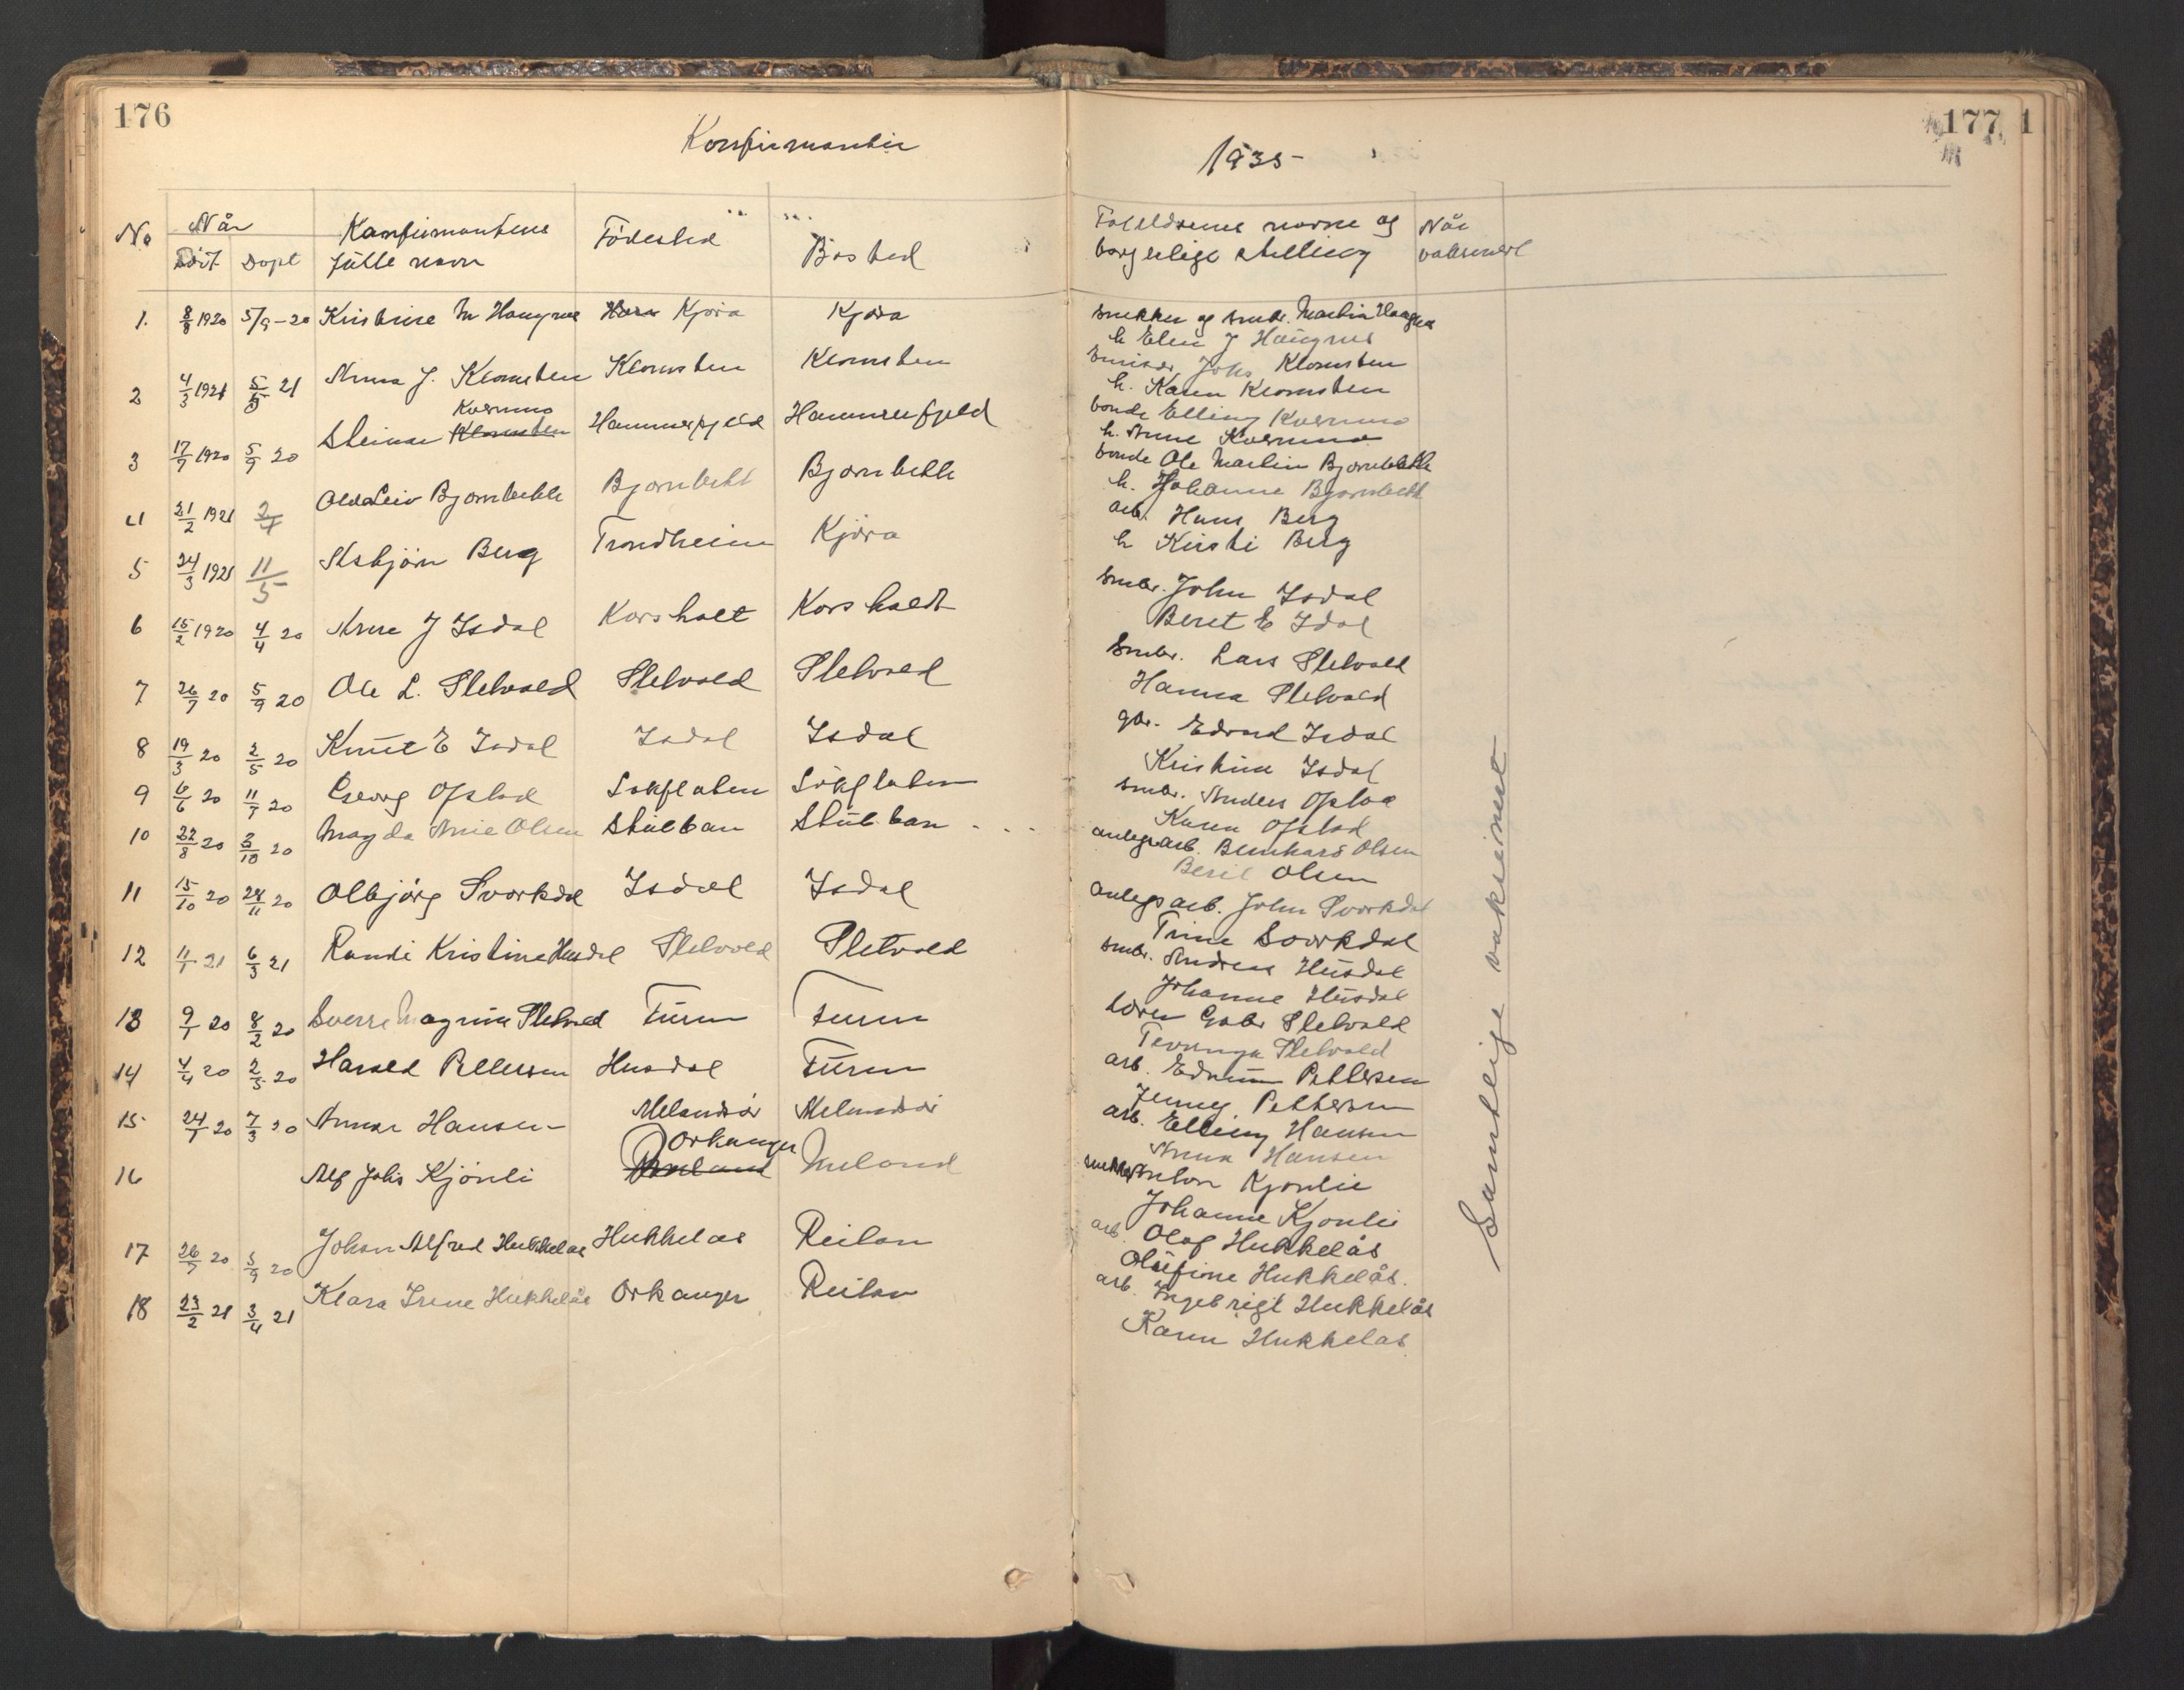 176
Konfirmanter
1935
177 1
No
Når
Född Döpt
Konfirmantens
fulle navn
Födested
Bosted
Foreldrenes navne og
borgerlige stilling
Når
vaksinert
1. 8/8 1920 5/9-20 Kristine M Haugnes Kjöra Kjöra
snekker og smbr. Martin Haugnes
h Elen J Haugnes
2 4/3 1921 5/5 21 Anna J. Klomsten Klomsten Klomsten
Emisær Johs Klomsten
h. Karen Klomsten
Kvernmo
3 17/7 1920 5/9 20 Steinar Klomsten Hammerfjeld Hammerfjeld
bonde Elling Kvernmo
h. Anne Kvernmo
4 21/2 1921 2/4 Olav Leiv Bjørnbekk Bjørnbekk Bjørnbekk
bonde Ole Martin Bjørnbekk
h. Johanne Bjørnbekk
5 24/3 1921 11/5 Asbjörn Berg Trondheim Kjöra
arb. Hans Berg
h Kirsti Berg
6 15/2 1920 4/4 20 Arne J Isdal Korsholt Korsholdt
smbr. John Isdal
Beret E Isdal
7 26/7 20 5/9 20 Ole L. Sletvold Sletvold Sletvold
Smbr. Lars Sletvold
Hanna Sletvold
8 19/3 20 2/5 20 Knut E Isdal Isdal Isdal
gbr. Edvard Isdal
Kristine Isdal
9 6/6 20 11/7 20 Georg Opstad Sökflaten Sökflaten
smbr. Anders Opstad
Karen Opstad
10 22/8 20 3/10 20 Magda Marie Olsen Stubban Stubban
anlegsarb. Bernhard Olsen
Beril Olsen
11 15/10 20 28/11 20 Olbjörg Svorkdal Isdal Isdal
anlegsarb. John Svorkdal
Trine Svorkdal
12 11/1 21 6/3 21 Randi Kristine Husdal Sletvold Sletvold
smbr. Andreas Husdal
Johanne Husdal
13 9/1 20 8/2 20 Sverre Magnus Sletvold Furen Furen
Sören Gabr Sletvold
Sletvold
14 4/4 20 2/5 20 Harald Pettersen Husdal Furen
arb. Edvin Pettersen
Jenny Pettersen
15 24/1 20 7/3 20 Annar Hansen Melandsör Melandsör
arb. Elling Hansen
Anna Hansen
Orkanger
16 Alf Johs Kjönli Meland
snekker Anton Kjønlie
Johanne Kjønlie
17 26/7 20 5/9 20 Johan Alfred Hukkelås Hukkelås Reilan
arb. Olaf Hukkelås
Olufine Hukkelås.
18 23/2 21 3/4 21 Klara Irene Hukkelås Orkanger Reilan
arb. Ingebrigt Hukkelås
Karen Hukkelås
Samtlige vaksinert